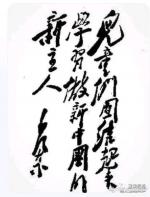 儿童们团结起来
学习做新中国的
新主人
毛泽东